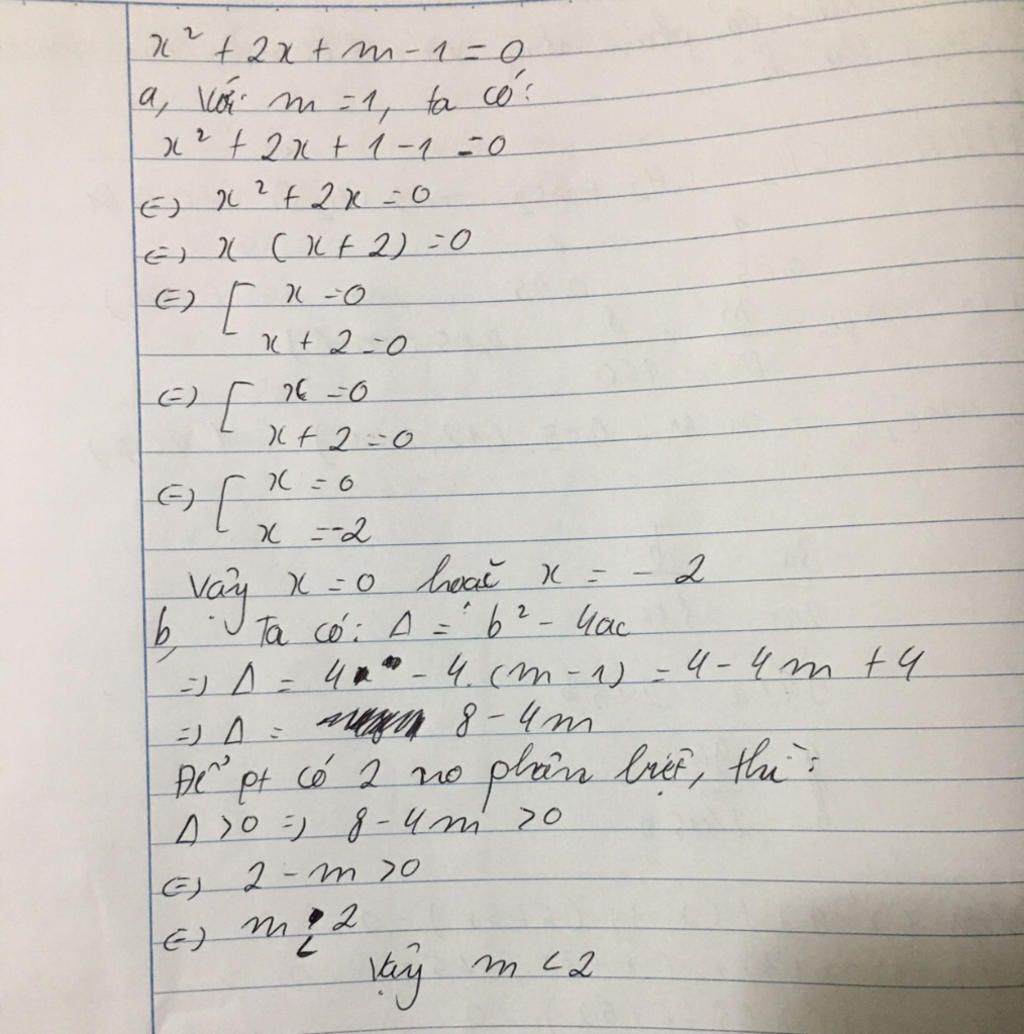 x² + 2x + m - 1 = 0
a, Với m = 1, ta có:
x² + 2x + 1 - 1 = 0
⇔ x² + 2x = 0
⇔ x (x + 2) = 0
⇔ [ x = 0
x + 2 = 0
⇔ [ x = 0
x + 2 = 0
⇔ [ x = 0
x = -2
Vậy x = 0 hoặc x = - 2
b, Ta có: Δ = b² - 4ac
=> Δ = 4 - 4. (m - 1) = 4 - 4m + 4
=> Δ = 8 - 4m
Để pt có 2 no phân biệt, thì:
Δ > 0 => 8 - 4m > 0
⇔ 2 - m > 0
⇔ m < 2
Vậy m < 2